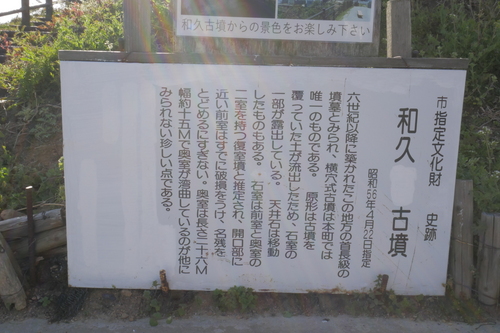 和久古墳からの景色をお楽しみ下さい
市指定文化財 史跡
和久 古墳
昭和56年4月22日指定
六世紀以降に築かれたこの地方の首長級の
墳墓とみられ、横穴式古墳は本町では
唯一のものである。 原形は古墳を
覆っていた土が流出したため、石室の
一部が露出している。 天井石は移動
したものもある。 石室は前室と奥室の
二室を持つ復室墳と推定され、開口部に
近い前室はすでに破損をうけ、名残を
とどめるにすぎない。奥室は長さ二十六M
幅約十五Mで奥室が湾曲しているのが他に
みられない珍しい点である。